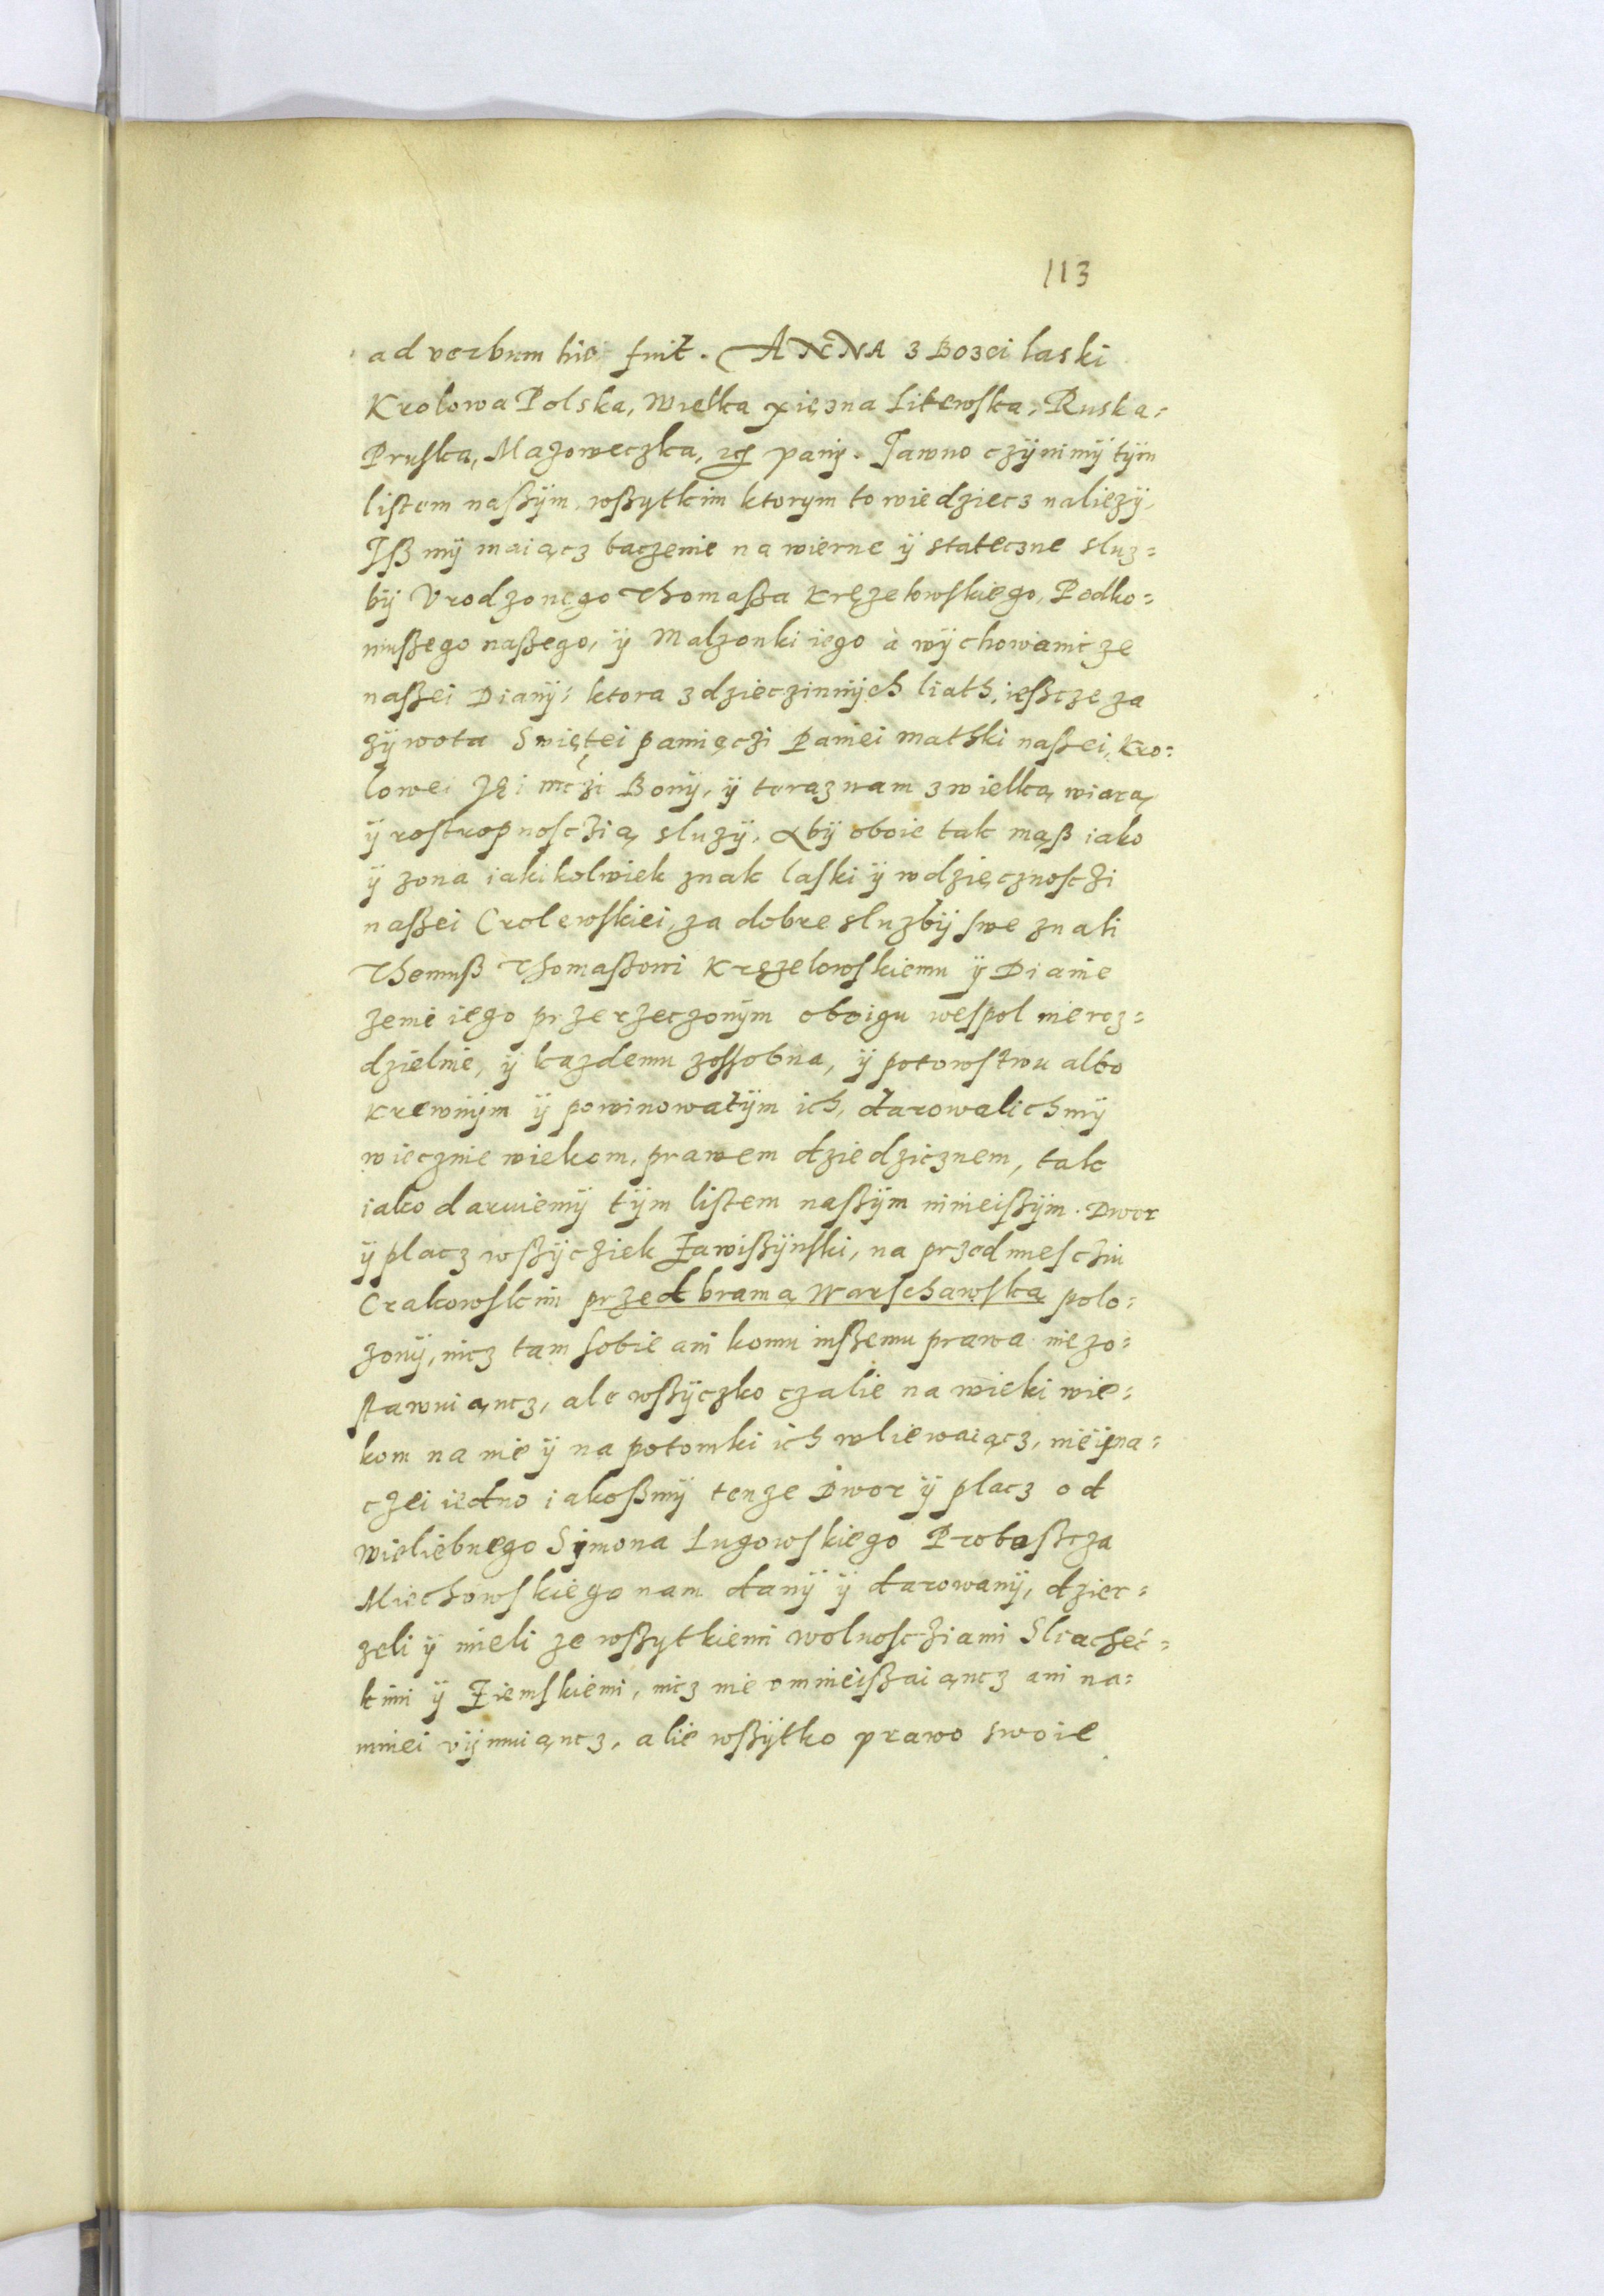 113
ad verbum hic fuit. ANNA z Bozei laski
Krolowa Polska, Wielka xięzna Litewska, Ruska,
Pruska, Mazoweczka, etc pani. Jawno czÿnimÿ tÿm
listem naßÿm, wßytkim ktorym to wiedziecz naliezÿ,
Iß mÿ maiącz baczenie na wierne ÿ stateczne sluz=
bÿ Vrodzonego Thomaßa Kręzelowskiego, Podko=
mußego naßego, ÿ Malzonki iego à wÿchowanicze
naßei Dianÿ, ktora z dzieczinnÿch liath, ießcze za
zÿwota Swiętei pamięczi Paniei mathki naßei, Kro=
lowei Jęi mczi Bonÿ, ÿ teraz nam z wielką wiarą
ÿ rostropnosczią sluzÿ. Abÿ oboie tak mąß iako
ÿ zona iakikolwiek znak laski ÿ wdzięcznosczi
naßei Crolewskiei, za dobre sluzbÿ swe znali
Themuß Thomaßowi Kręzelowskiemu ÿ Dianie
zenie iego przerzeczonÿm oboigu wespol nieroz=
dzielnie, ÿ kazdemu zossobna, ÿ potowstwu albo
krewnÿm ÿ powinowatÿm ich, darowalichmÿ
wiecznie wiekom, prawem dziedzicznem, tak
iako daruiemÿ tÿm listem naßÿm ninieißÿm. Dwor
ÿ placz wßÿcziek Zawißÿnski, na przedmiesciu
Crakowskim przed bramą Warschawską polo=
zonÿ, nicz tam sobie ani komu inßemu prawa nie zo=
stawuiąncz, ale wßÿczko czalie na wieki wie=
kom na nie ÿ na potomki ich wliewaiącz, nie ina=
czei iedno iakoßmÿ tenze Dwor ÿ placz od
wieliebnego Sÿmona Lugowskiego Probaßcza
Miechowskiego nam danÿ ÿ darowanÿ, dzier=
zeli ÿ mieli ze wßytkiemi wolnoscziami Sliachec=
kimi ÿ Ziemskiemi, nicz nie omnieißaiąncz ani na=
mniei vÿmuiąncz, alie wßÿtko prawo swoie